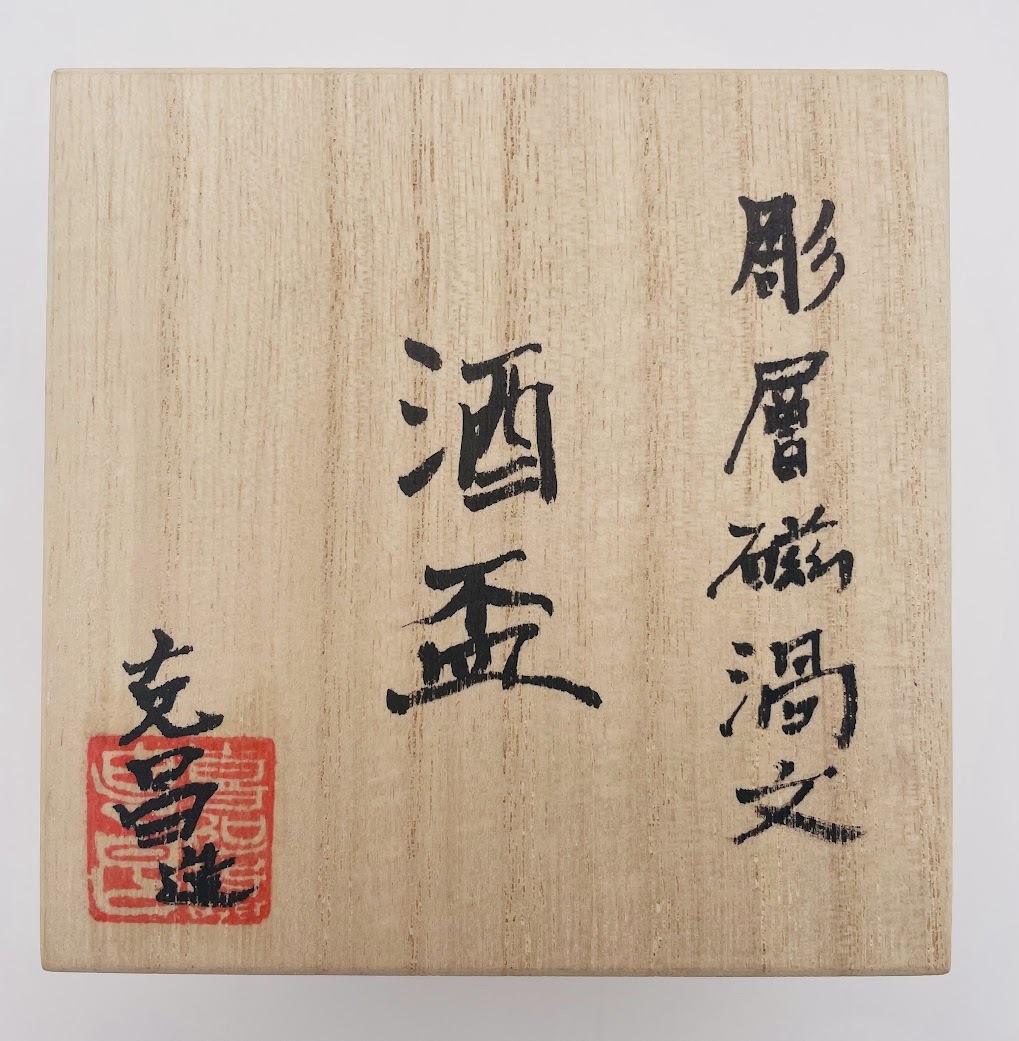 彫層磁渦文
酒盃
克昌造